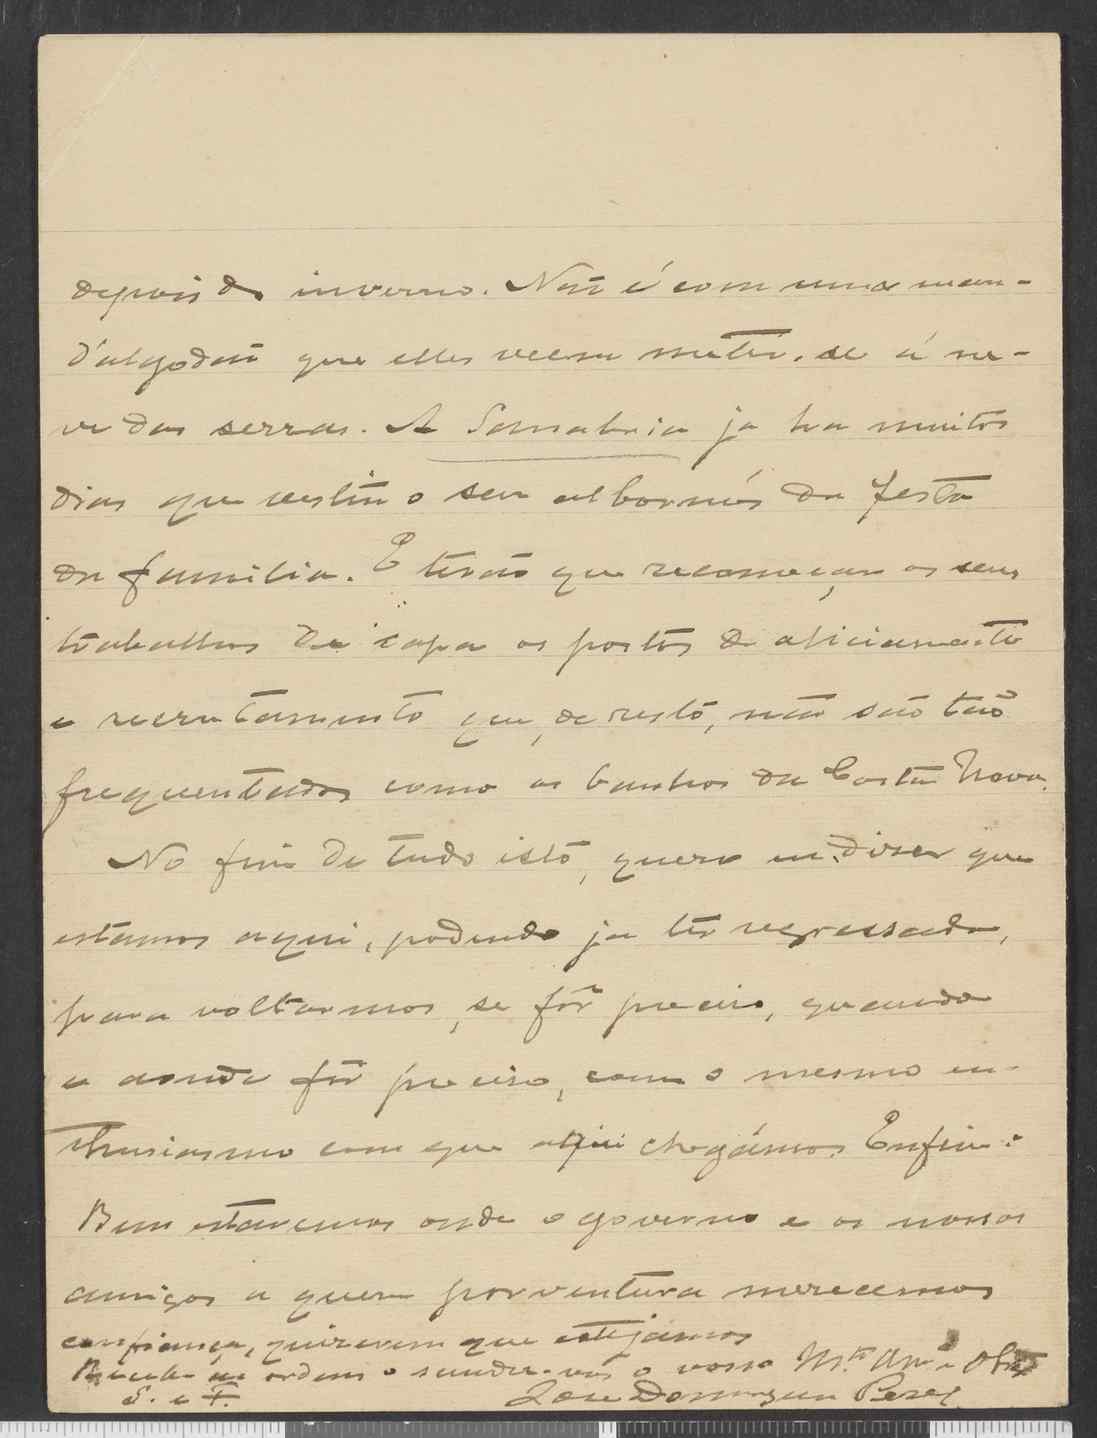 depois do inverno. Não é com uma man-
d'algodão que elles veem metter-se á ne-
ve das serras. A Sanabria ja ha muitos
dias que vestiu o seu albornós da festa
da familia. E terão que recomeçar os seus
trabalhos de sapa os postos de aliciamento
e recrutamento que, de resto, não são tão
frequentados como os banhos da Costa Nova.
No fim de tudo isto, quero eu dizer que
estamos aqui, podendo ja ter regressado,
para voltarmos, se fôr preciso, quando
e aonde fôr preciso, com o mesmo en-
thusiasmo com que aqui chegámos. Enfim:
Bem estaremos onde o governo e os nossos
amigos a quem porventura merecemos
confiança, quizerem que estejamos
ordens o vosso Mto Amo e Obro
S. e F. José Domingues Peres